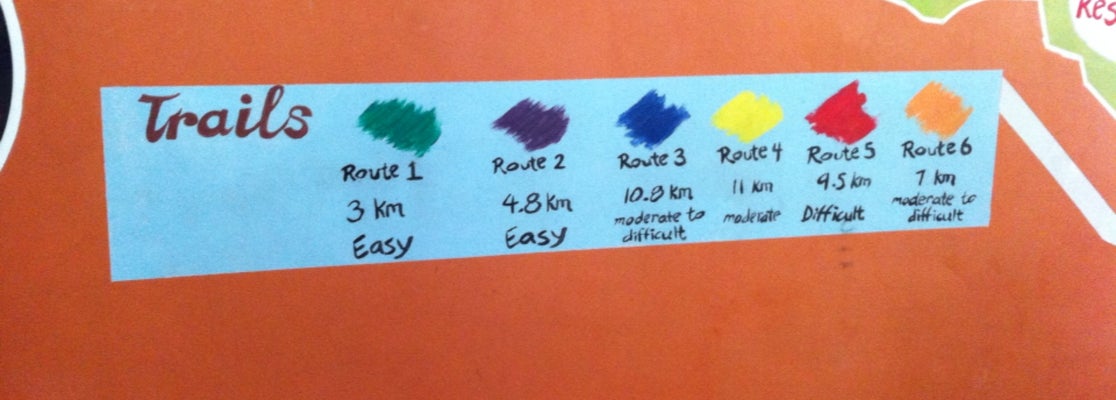 Trails
Route 1
3 km
Easy
Route 2
4.8 km
Easy
Route 3
10.8 km
moderate to
difficult
Route 4
11 km
moderate
Route 5
9.5 km
Difficult
Route 6
7 km
moderate to
difficult